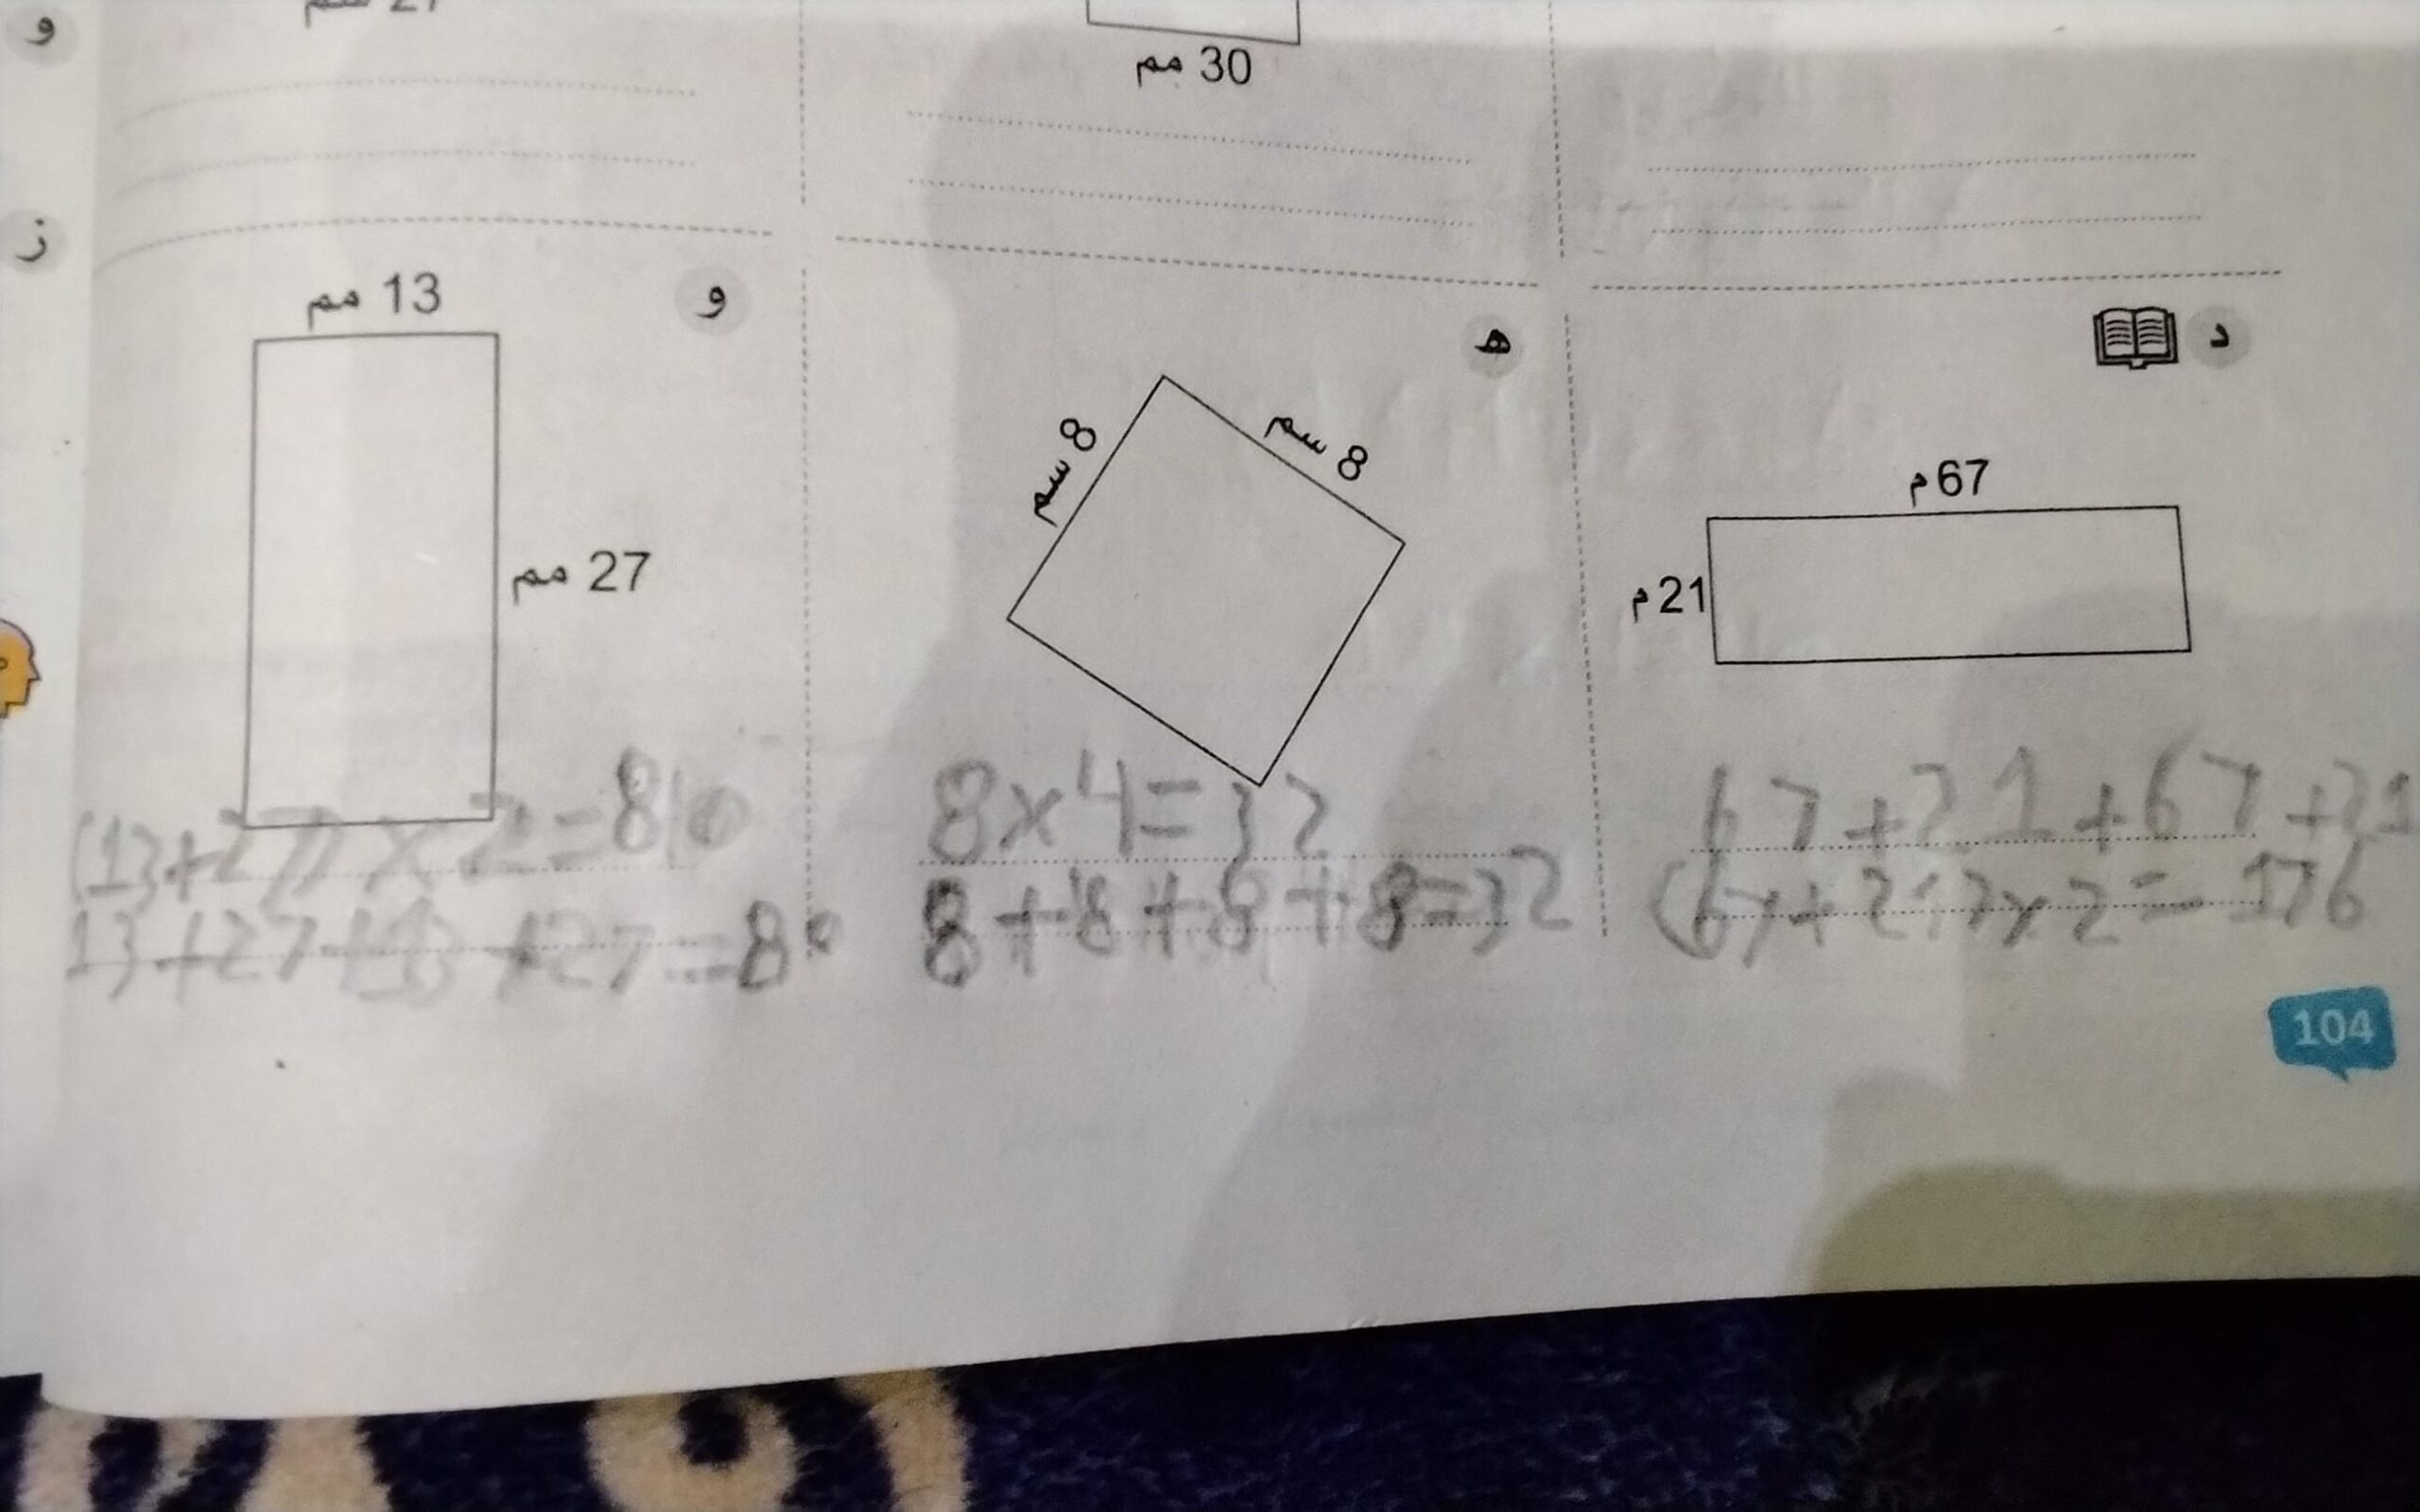 و
30 مم
ز
د
67م
21م
67+21+67+21
(67+21)×2=176
ه
8 سم
8 سم
8×4=32
8+8+8+8=32
و
13 مم
27 مم
(13+27)×2=80
13+27+13+27=80
104